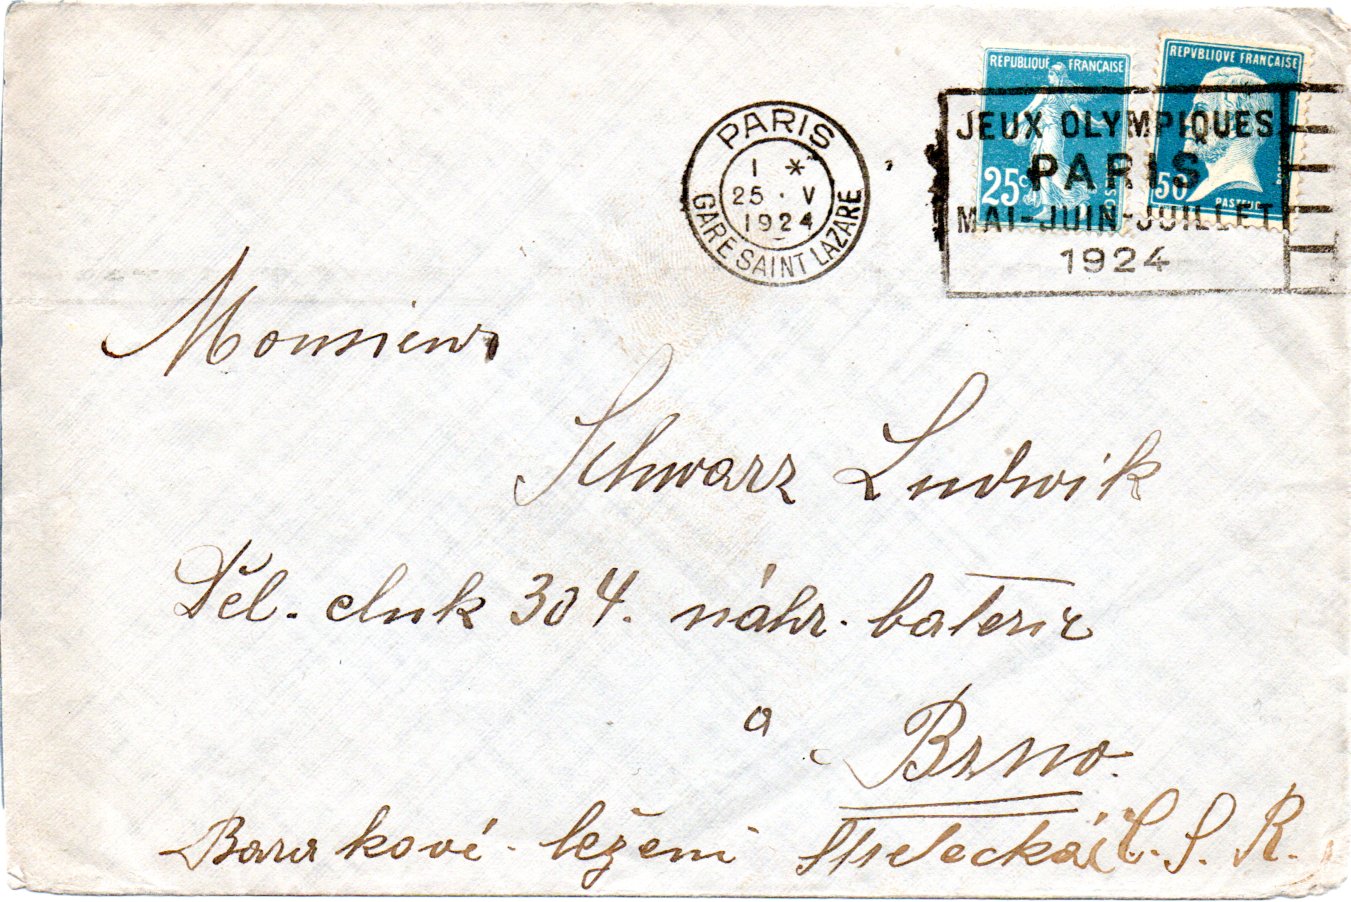 REPUBLIQUE FRANÇAISE
25c
REPVBLIQVE FRANÇAISE
50
PASTEUR
PARIS
1 *
25 · V
1924
GARE SAINT LAZARE
JEUX OLYMPIQUES
PARIS
MAI-JUIN-JUILLET
1924
Monsieur
Schwarz Ludwik
Děl. pluk 304. náhr. baterie
a
Brno.
Barakové ležení Střelecká Č. S. R.